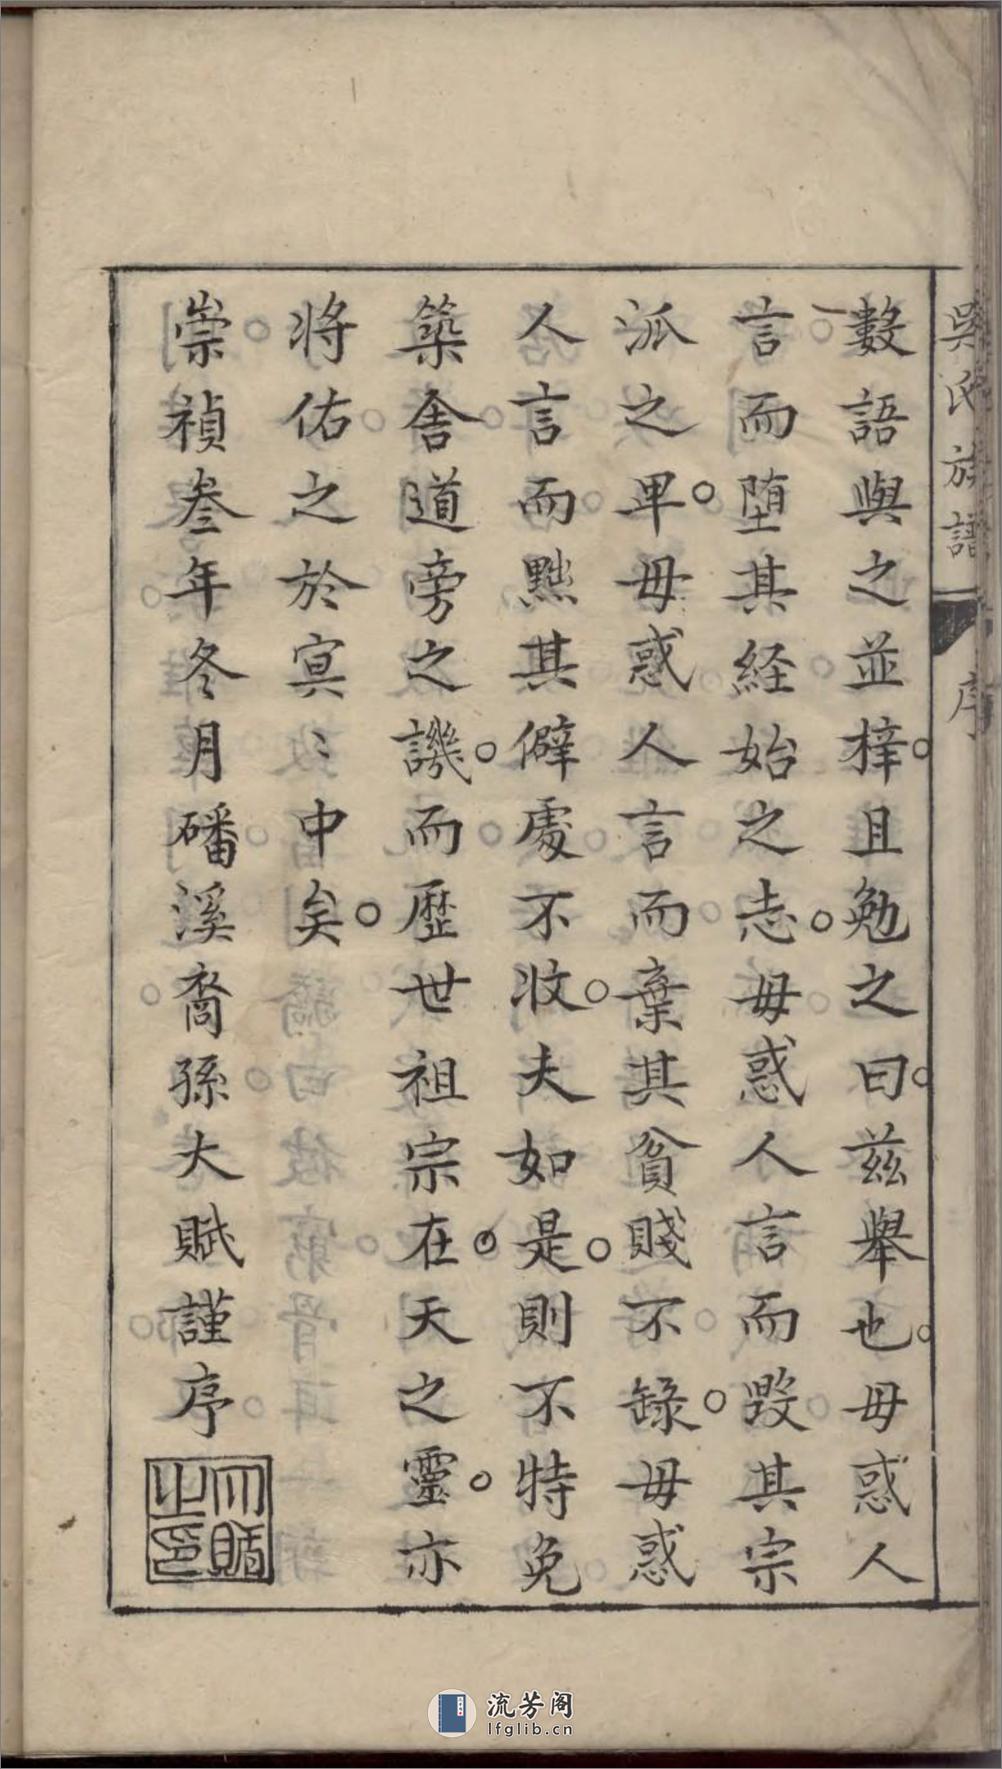 吳氏族譜 序
數語與之並梓。且勉之曰。兹舉也。毋惑人
言而堕其経始之志。毋惑人言而毀其宗
派之卑。毋惑人言而棄其貧賤不錄。毋惑
人言而黜其僻處不收。夫如是。則不特免
築舍道旁之譏。而歷世祖宗在。天之靈。亦
将佑之於寘〻中矣。
崇禎叁年冬月磻溪裔孫大賦謹序
大賦之印
流芳阁
lfglib.cn